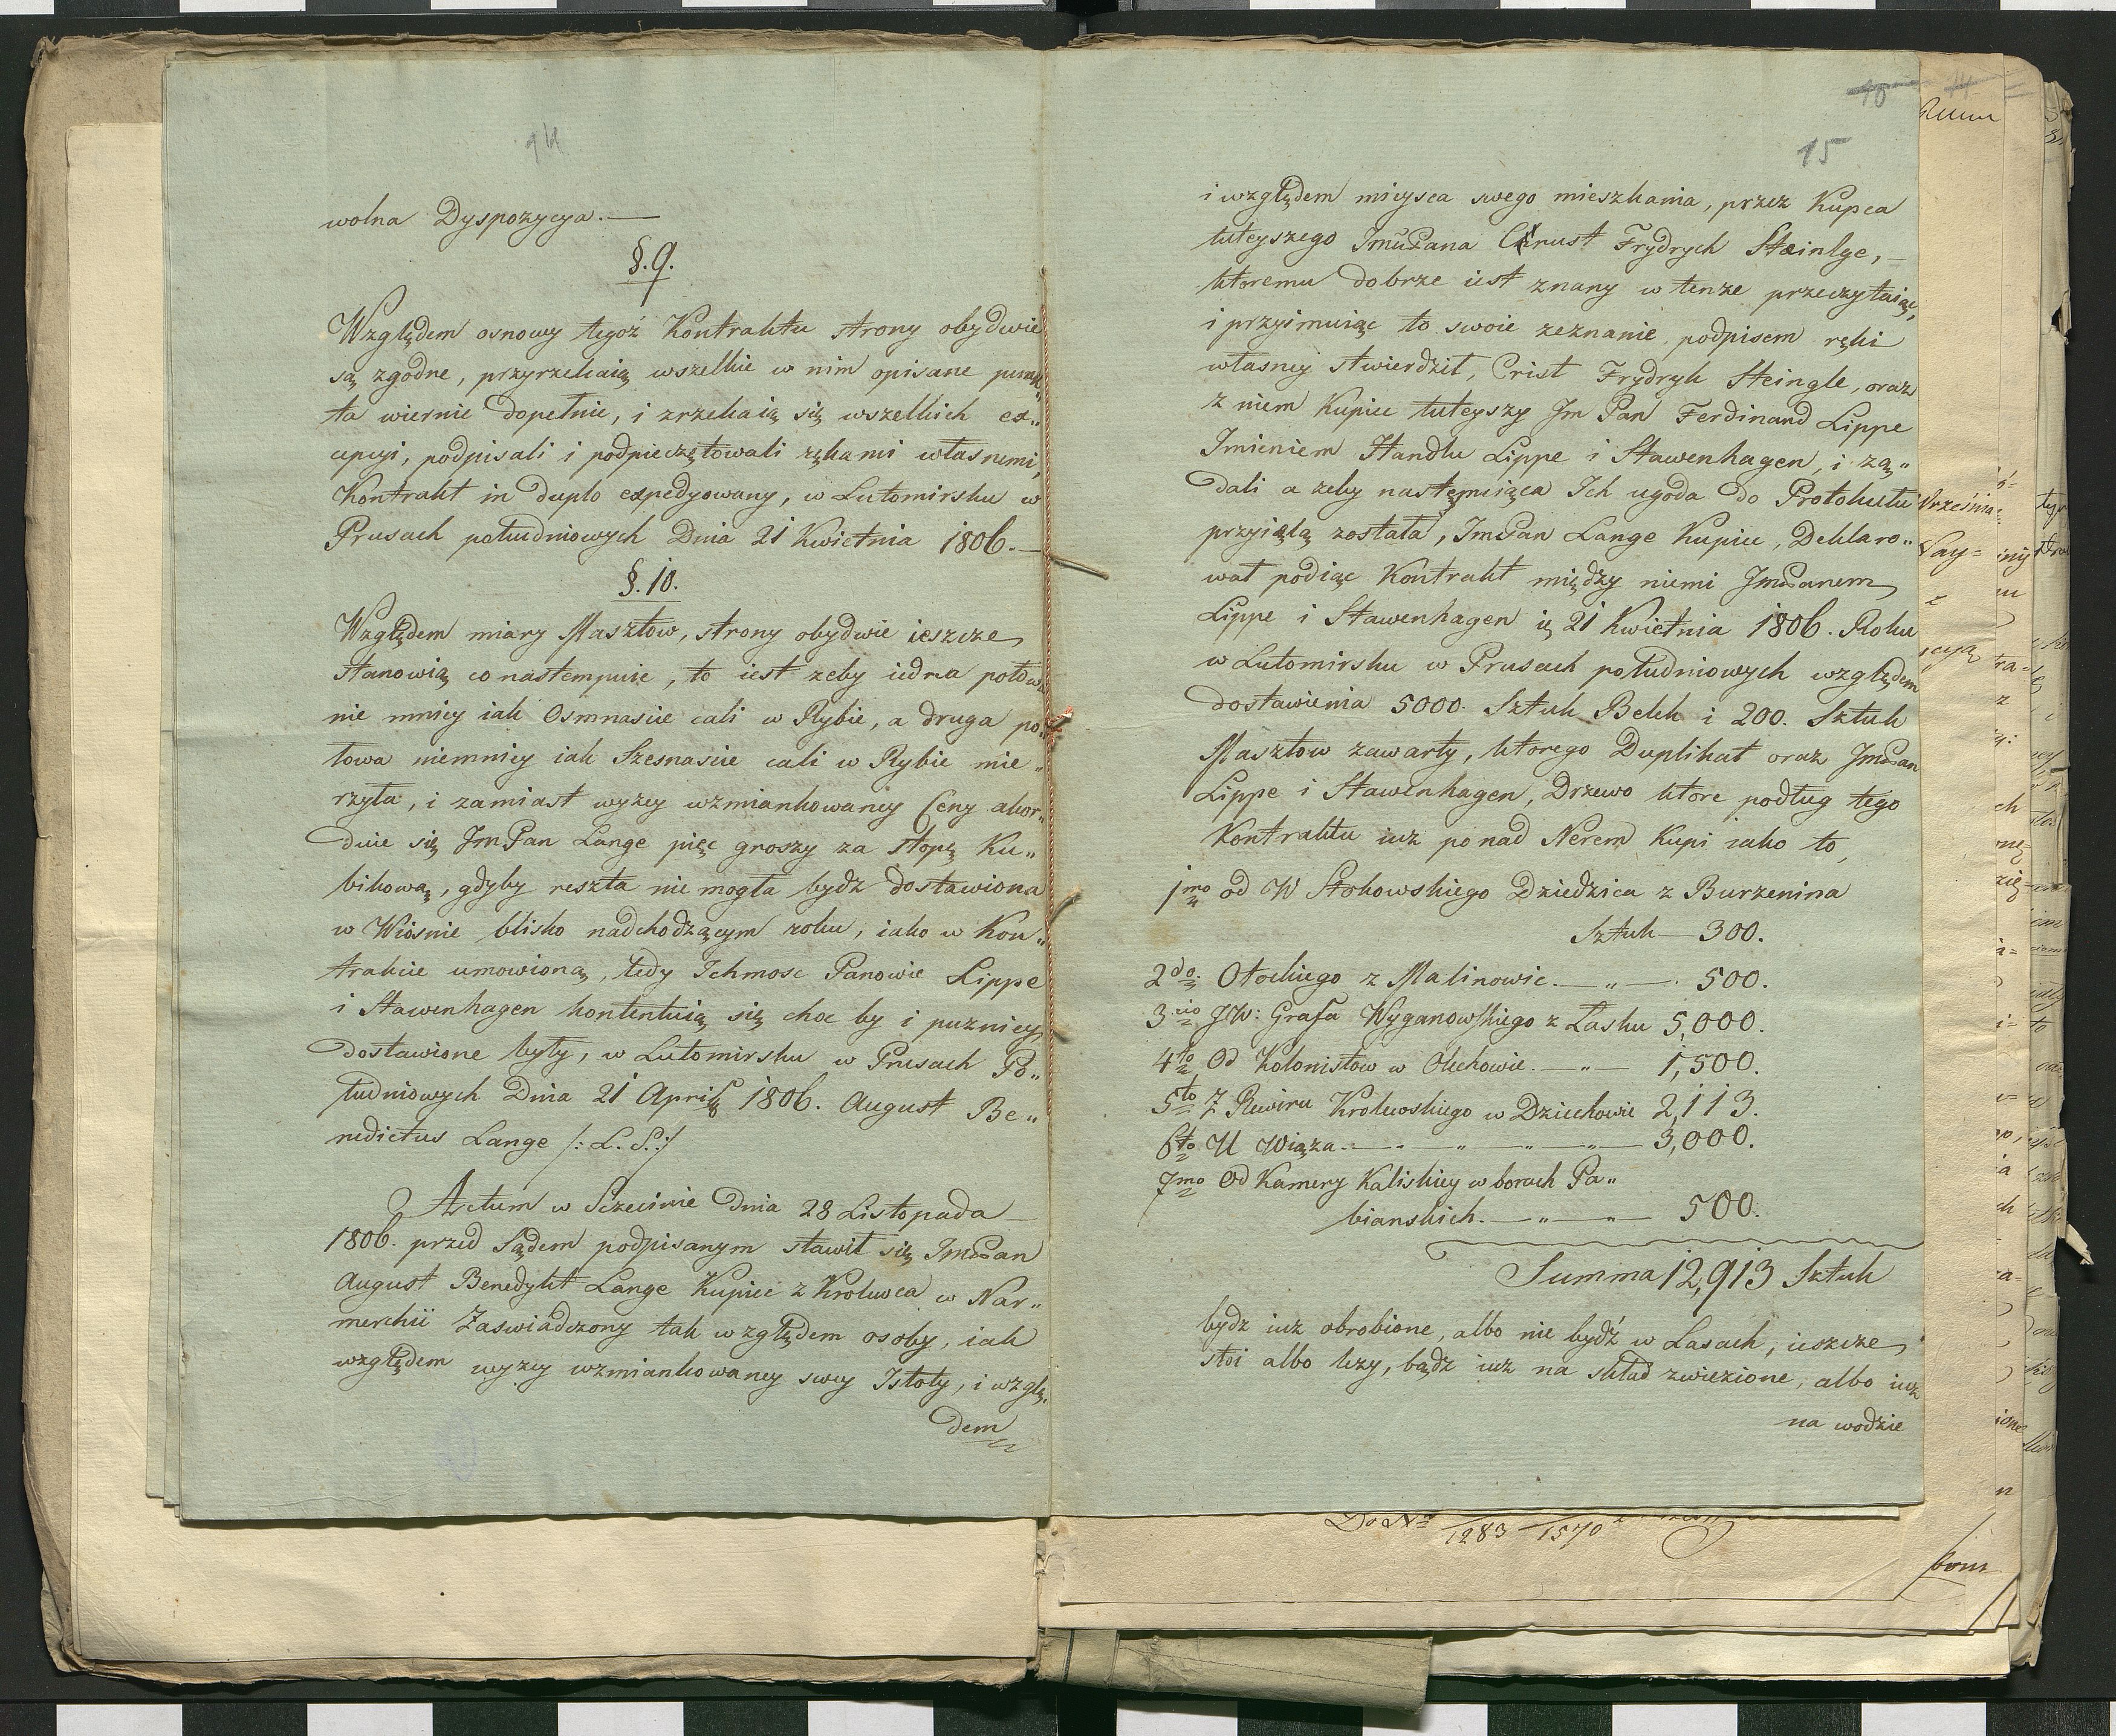 14
wolna Dyspozycya. —
§. 9.
Względem osnowy tegoż Kontraktu strony obydwie
są zgodne, przyrzekaią wszelkie w nim opisane punk„
ta wiernie dopełnic, i zrzekaią się wszelkich ex„
cepcyi, podpisali i podpieczętowali rękami własnemi,
Kontrakt in duplo expedyowany, w Lutomirsku w
Prusach południowych Dnia 21 Kwietnia 1806. —
§. 10.
Względem miary Masztow, strony obydwie ieszcze
stanowią co nastempuie, to iest zeby iedna połowa
nie mniey iak Osmnascie cali w Rybie, a druga po„
łowa niemniey iak Szesnascie cali w Rybie mie„
rzyła, i zamiast wyzey wzmiankowaney Ceny akor„
duie się JmPan Lange pięc groszy za stopę Ku„
bikową, gdyby reszta nie mogła bydz dostawiona
w Wiosnie blisko nadchodzącym roku, iako w Kon„
trakcie umowioną, tedy Ichmosc Panowie Lippe
i Stawenhagen kontentuią się choc by i puzniey
dostawione były, w Lutomirsku w Prusach Po„
łudniowych Dnia 21 Aprilis 1806. August Be„
nedictus Lange /: L. S. :/
Actum w Sczecinie Dnia 28 Listopada —
1806. przed Sądem podpisanym stawił się ImcPan
August Benedykt Lange Kupiec z Krolewca w Nar„
merchii Zaswiadczony tak względem osoby, iak
względem wyzey wzmiankowaney swey Istoty, i wzglę„
dem
10 14
15
i względem mieysca swego mieszkania, przez Kupca
tuteyszego ImcPana Crnust Frydrych Steinlge, —
ktoremu dobrze iest znany w tenze przeczytaiąc,
i przyimuiąc to swoie zeznanie podpisem ręki
własney stwierdził, Crist Frydryk Steingle, oraz
z niem Kupiec tuteyszy Jm Pan Ferdinand Lippe
Imieniem Handlu Lippe i Stawenhagen, i zą„
dali a zeby nastęmuiąca Ich ugoda do Protokułu
przyiętą została, ImcPan Lange Kupiec, Deklaro„
wał podiąc Kontrakt między niemi JmcPanem
Lippe i Stawenhagen ię 21 Kwietnia 1806. Roku
w Lutomirsku w Prusach południowych względem
dostawienia 5000. Sztuk Belek i 200. Sztuk
Masztow zawarty, ktorego Duplikat oraz JmcPan
Lippe i Stawenhagen, Drzewo ktore podług tego
Kontraktu iuz ponad Nerem Kupi iako to,
1mo od W Stokowskiego Dziedzica z Burzenina
Sztuk — 300.
2do Otockiego z Malinowic. — „ — 500.
3tio JW: Grafa Wyganowskiego z Łasku 5,000.
4to Od Kolonistow w Olechowie. — „ — 1,500.
5to Z Rewiru Krolewskiego w Dziechowie 2,113.
6to U Wiąza. — „ — „ — „ — „ — 3,000.
7mo Od Kamery Kaliskiey w borach Pa„
bianskich. — „ — „ — 500.
Summa 12,913 Sztuk
bydz iuz obrobione, albo nie bydź w Lasach, ieszcze
stoi albo lezy, bądz iuz na skład zwiezione, albo iuz
na wodzie
Do No 1283 1570